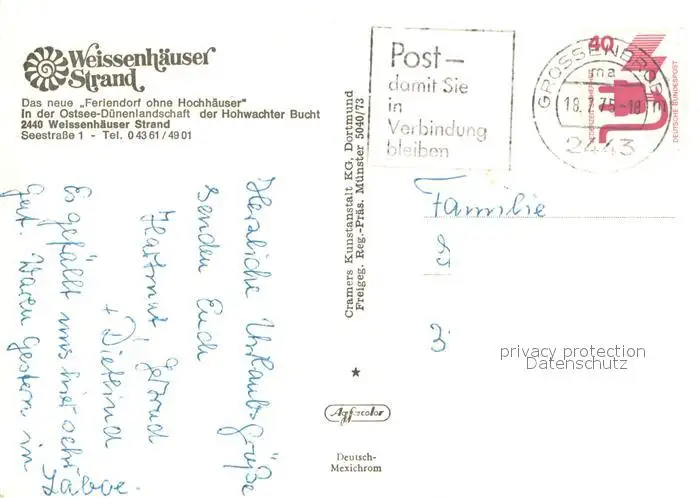 Weissenhäuser
Strand
Das neue „Feriendorf ohne Hochhäuser"
in der Ostsee-Dünenlandschaft der Hohwachter Bucht
2440 Weissenhäuser Strand
Seestraße 1 - Tel. 04361/4901
Post-
damit Sie
in
Verbindung
bleiben
GROSSENBRODE
ma
18.7.75-18
2443
40
DEUTSCHE BUNDESPOST
Cramers Kunstanstalt KG, Dortmund
Freigeg. Reg.-Präs. Münster 5040/73
Herzliche Urlaubsgrüße
senden Euch
Hartmut, Gerund
+ Dietlind
Es gefällt uns hier sehr
gut. Waren gestern in
Laboe.
Familie
3
privacy protection
Datenschutz
Agfacolor
Deutsch-
Mexichrom